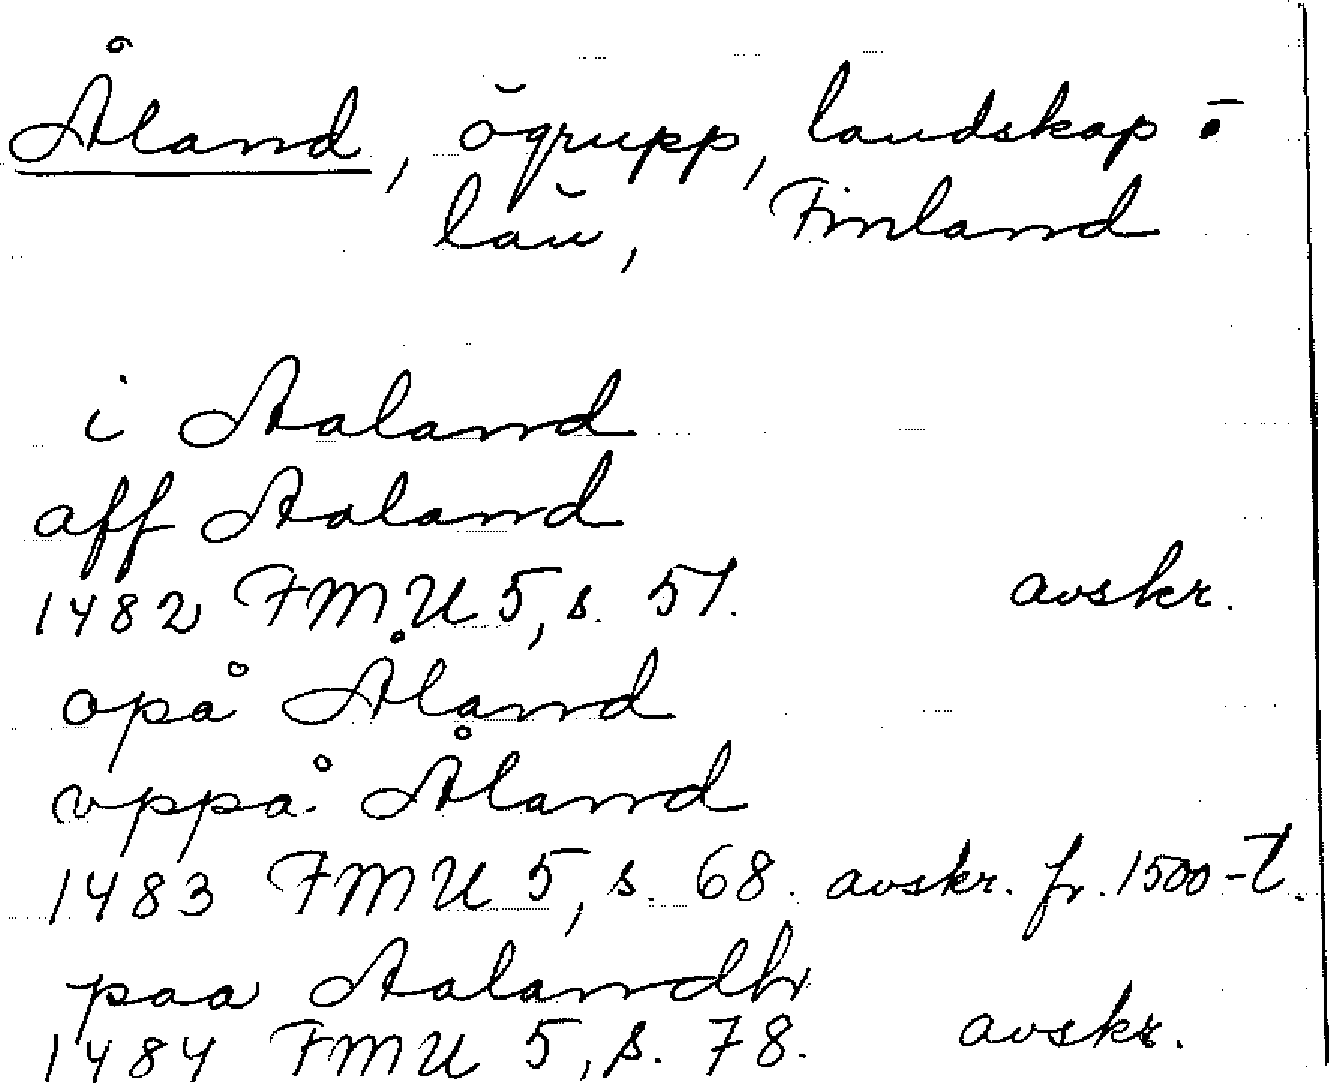 Åland, ögrupp, landskap i
län, Finland
i Aaland
aff Aaland
1482 FMU 5, s. 51. avskr.
opå Åland
vppå Åland
1483 FMU 5, s. 68. avskr. fr. 1500-t.
paa Aalandh
1484 FMU 5, s. 78. avskr.